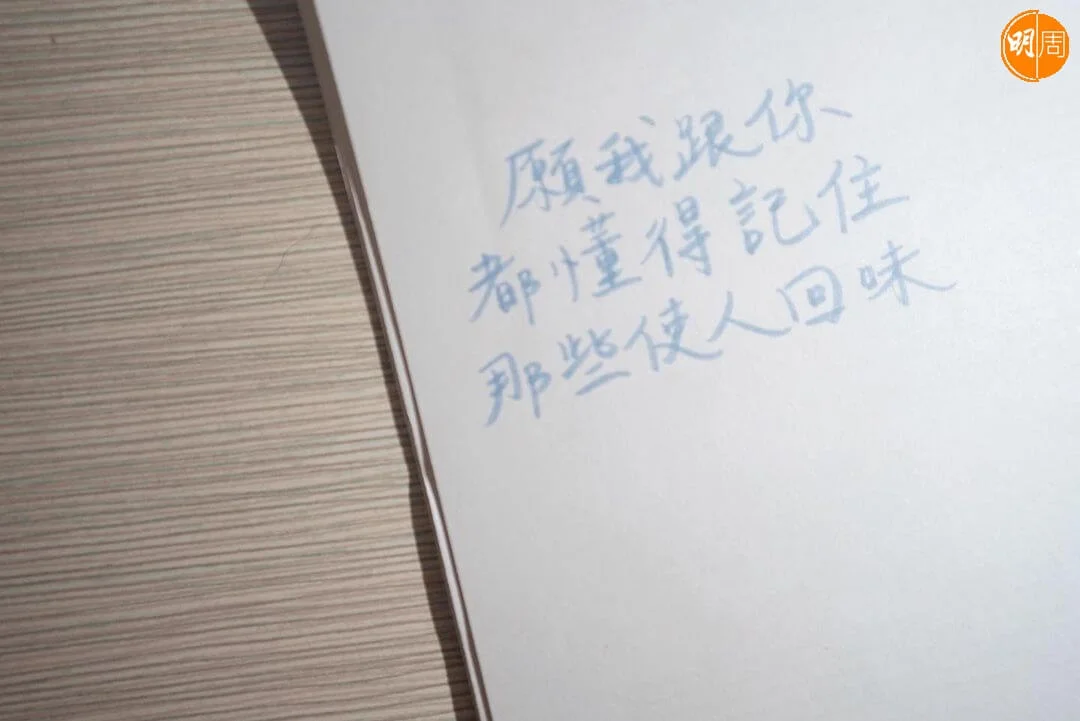 明周
願我跟你
都懂得記住
那些使人回味